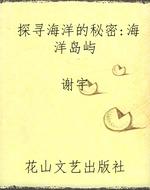 探寻海洋的秘密:海
洋岛屿
谢宇
花山文艺出版社